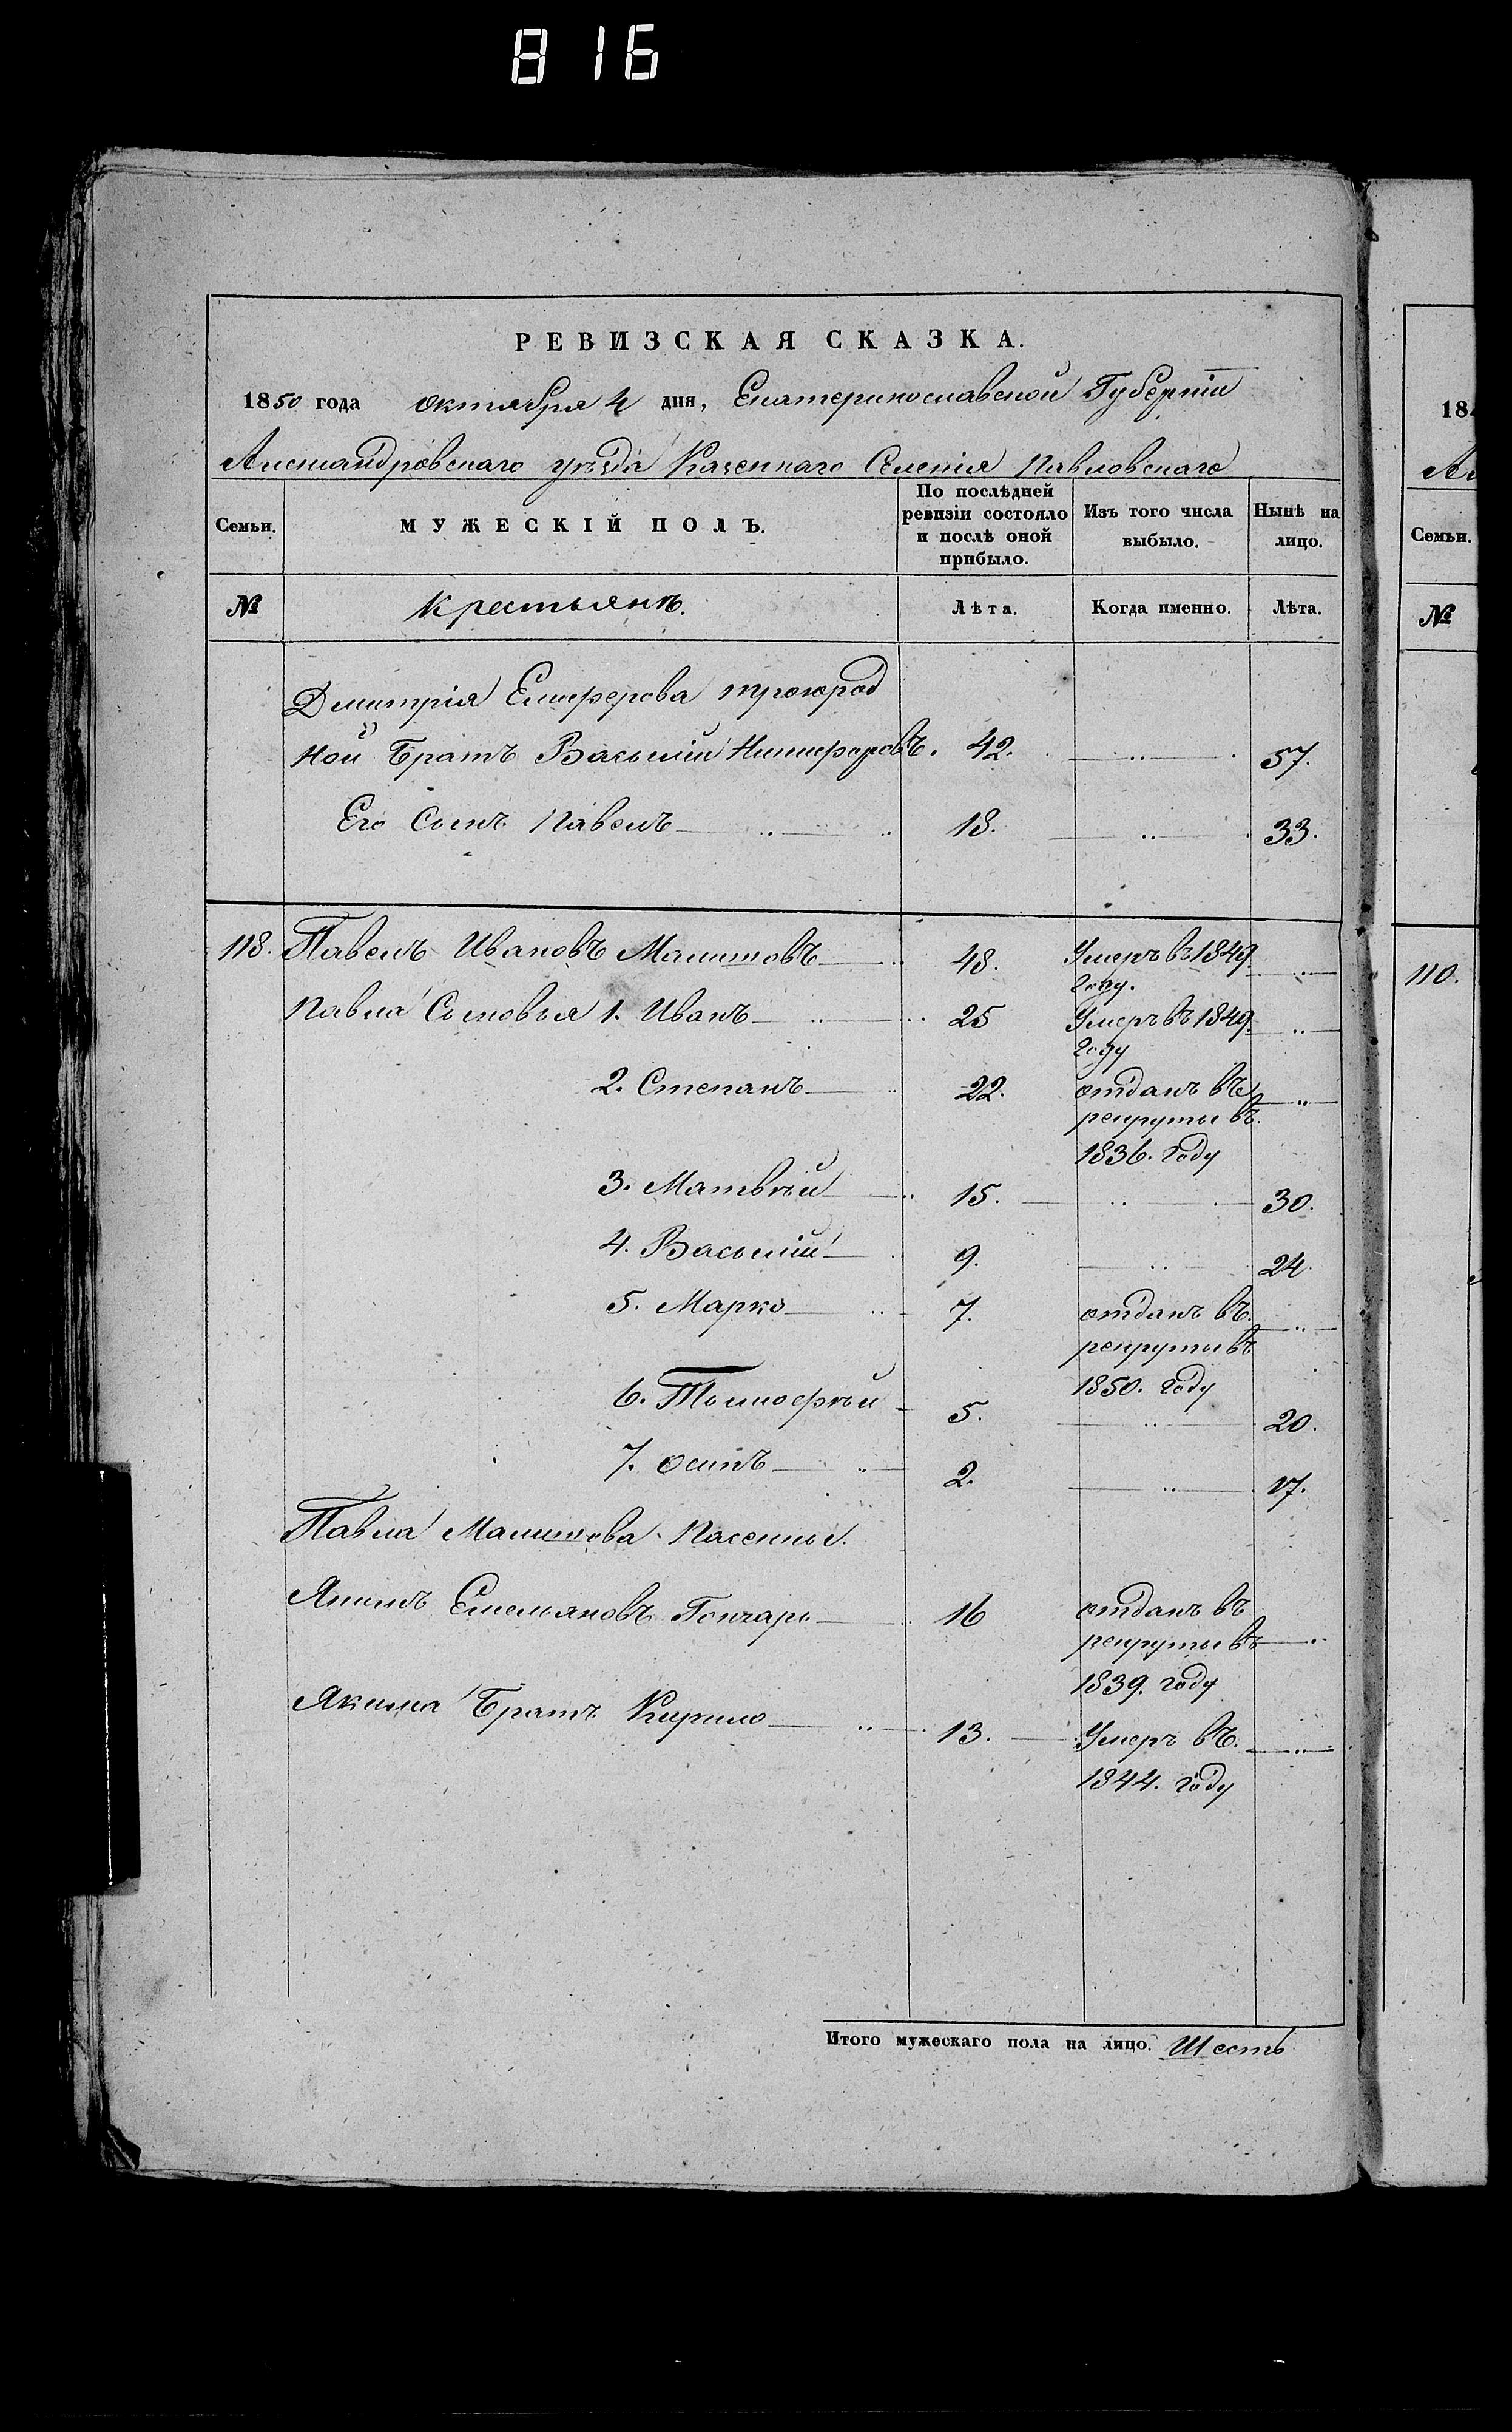 816
РЕВИЗСКАЯ СКАЗКА.
1850 года октября 4 дня, Екатеринославской Губерніи
Александровскаго уѣзда Казеннаго Селенія Павловскаго
Семьи.
МУЖЕСКІЙ ПОЛЪ.
По послѣдней ревизіи состояло и послѣ оной прибыло.
Изъ того числа выбыло.
Нынѣ на лицо.
№
Крестьянъ.
Лѣта.
Когда именно.
Лѣта.
Дмитрія троюрод
ной Братъ Василій Никифоровъ. 42. 57.
Его Сынъ Павелъ 18. 33.
118. Павелъ Ивановъ 48. Умеръ въ 1849.
году.
Павла Сыновья 1. Иванъ 25 Умеръ въ 1849.
году
2. Степанъ 22. отданъ въ
рекруты въ.
1836. году
3. Матвѣй 15. 30.
4. Василій 9. 24.
5. Марко 7. отданъ въ.
рекруты въ
1850. году
6. Тымофѣй 5. 20.
7. осипъ 2. 17.
Павла
Якимъ Емельяновъ Гончарь 16 отданъ въ
рекруты въ
1839. году
Якима Братъ Кирило 13. Умеръ въ.
1844. году
Итого мужескаго пола на лицо. Шесть
184
Семьи.
№
110.